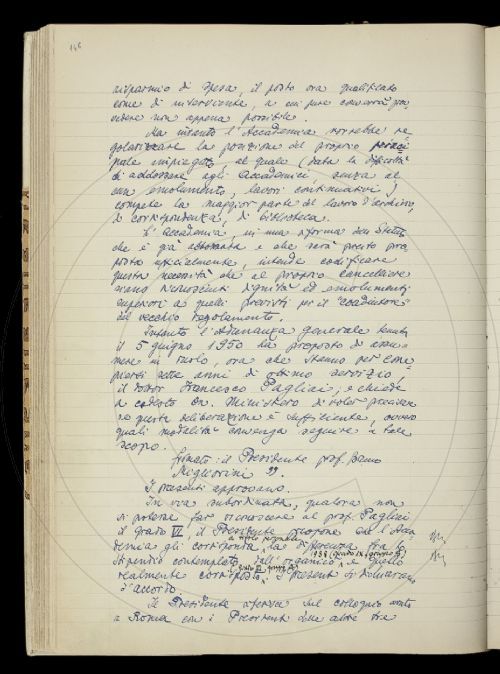 146
risparmio di spesa, il posto ora qualificato
come di inserviente, a cui pure converrà prov
vedere non appena possibile.
Ma intanto l'Accademia vorrebbe re
golarizzare la posizione del proprio princi
pale impiegato, al quale (data la difficoltà
di addossare agli Accademici, senza al
cun emolumento, lavori continuativi)
compete la maggior parte del lavoro d'archivio,
di corrispondenza, di biblioteca.
L'Accademia, in una riforma dello Statuto
che è già abbozzata e che sarà presto pro
posta ufficialmente, intende codificare
questa necessità che al proprio cancelliere
siano riconosciuti dignità ed emolumenti
superiori a quelli previsti per il "coadiutore"
del vecchio regolamento.
Intanto l'Adunanza generale tenuta
il 5 giugno 1950 ha proposto di assu
mere in ruolo, ora che stanno per com
piersi sette anni di ottimo servizio,
il dottor Francesco Pagliai, e chiede
a codesto On. Ministero di voler precisare
se questa deliberazione è sufficiente, ovvero
quali modalità convenga seguire a tale
scopo.
firmato: il Presidente prof. Bruno
Migliorini"
I presenti approvano.
In via subordinata, qualora non
si potesse far riconoscere al prof. Pagliai
il grado IX, il Presidente propone che l'Acca
demia gli corrisponda la differenza fra lo
stipendio contemplato dall'organico e quello
realmente corrisposto. I presenti si dichiarano
d'accordo.
Il Presidente riferisce sul colloquio avuto
a Roma con i Presidenti delle altre tre